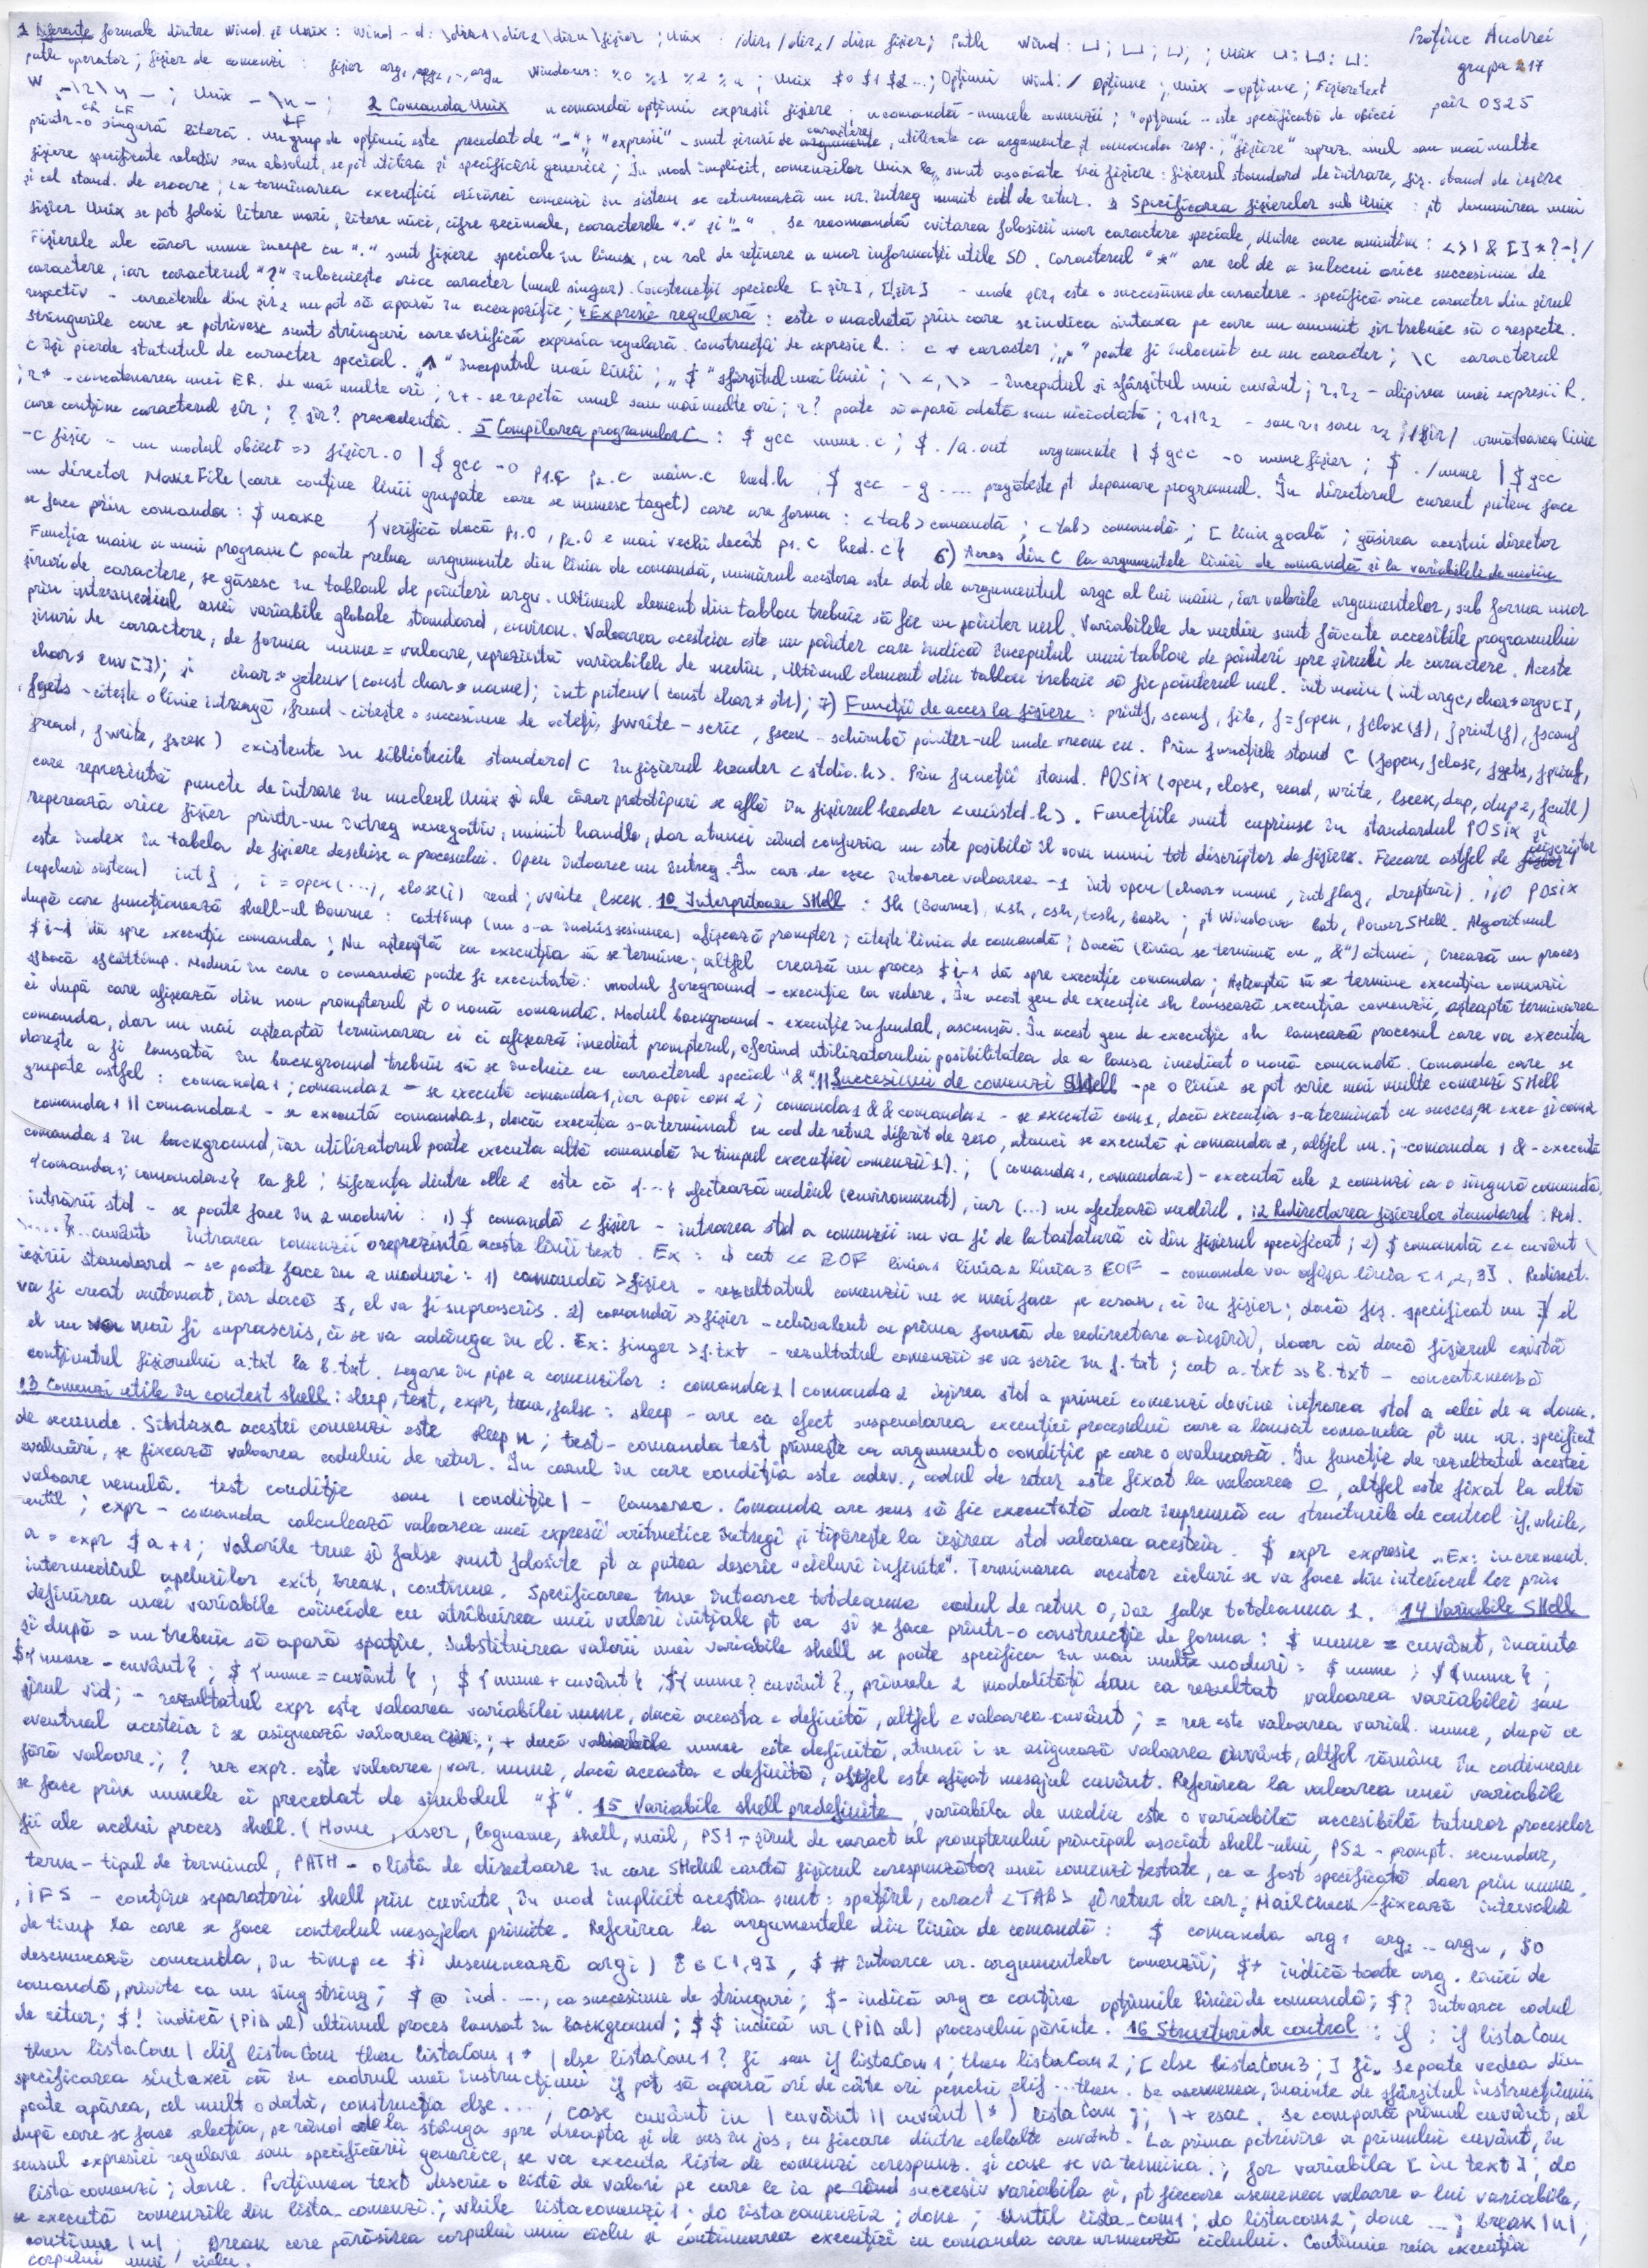 1 Diferențe formale dintre Wind. și Unix : Wind - d: \dir1\dir2\dirn\fișier ; Unix : /dir1/dir2/dirn fișier; Path Wind: ⊔; ⊔; ⊔; ; Unix ⊔: ⊔: ⊔:
Proțiuc Andrei
grupa 217
pair 0325
path operator; fișier de comenzi : fișier arg1, arg2, .., argn Windows: %0 %1 %2 %n ; Unix $0 $1 $2 ...; Opțiuni Wind: / opțiune ; Unix - opțiune ; Fișiere text
W -\r\n - ; Unix - \n - ; 2 Comanda Unix ncomandă opțiuni expresii fișiere ; ncomandă - numele comenzii ; "opțiuni - este specificată de obicei
CR LF LF
printr-o singură literă. Un grup de opțiuni este precedat de "-" ; "expresii" - sunt șiruri de caractere, utilizate ca argumente pt comanda resp. ; "fișiere" reprez. unul sau mai multe
fișiere specificate relativ sau absolut, se pot utiliza și specificări generice ; În mod implicit, comenzilor Unix le sunt asociate trei fișiere : fișierul standard de intrare, fiș. stand de ieșire
și cel stand. de eroare ; La terminarea execuției oricărei comenzi în sistem se returnează un nr. întreg numit cod de retur. 3 Specificarea fișierelor sub Unix : pt denumirea unui
fișier Unix se pot folosi litere mari, litere mici, cifre zecimale, caracterele "." și "_" . Se recomandă evitarea folosirii unor caractere speciale, dintre care amintim : < > | & [ ] * ? - ! /
Fișierele ale căror nume începe cu "." sunt fișiere speciale în linux, cu rol de reținere a unor informații utile SO. Caracterul "*" are rol de a înlocui orice succesiune de
caractere, iar caracterul "?" înlocuiește orice caracter (unul singur). Construcții speciale [șir], [!șir] - unde șir1 este o succesiune de caractere - specifică orice caracter din șirul
respectiv - caracterele din șir2 nu pot să apară în acea poziție; 4 Expresie regulară : este o machetă prin care se indica sintaxa pe care un anumit șir trebuie să o respecte.
Stringurile care se potrivesc sunt stringuri care verifică expresia regulară. Construcții de expresie R. : c ∀ caracter ; "." poate fi înlocuit cu un caracter ; \c caracterul
c își pierde statutul de caracter special. "^" începutul unei linii ; "$" sfârșitul unei linii ; \<,\> - începutul și sfârșitul unui cuvânt ; r1r2 - alipirea unei expresii R.
; r* - concatenarea unei ER. de mai multe ori ; r+ - se repetă unul sau mai multe ori ; r? poate să apară odată sau niciodată ; r1|r2 - sau r1 sau r2 ; /șir/ următoarea linie
care conține caracterul șir ; ?șir? precedentă. 5 Compilarea programelor C : $ gcc nume.c ; $ ./a.out argumente | $ gcc -o nume fișier ; $ ./nume | $ gcc
-c fișic - un modul obiect => fișier.o | $ gcc -o p1.c p2.c main.c hed.h $ gcc -g .... pregătește pt depanare programul. În directorul curent putem face
un director MakeFile (care conține linii grupate care se numesc taget) care are forma : <tab> comandă ; <tab> comandă ; [ linie goală ; găsirea acestui director
se face prin comanda : $ make {verifică dacă p1.o, p2.o e mai vechi decât p1.c hed.c} 6) Acces din C la argumentele liniei de comandă și la variabilele de mediu
Funcția main a unui program C poate prelua argumente din linia de comandă, numărul acestora este dat de argumentul argc al lui main, iar valorile argumentelor, sub forma unor
șiruri de caractere, se găsesc în tabloul de pointeri argv. Ultimul element din tablou trebuie să fie un pointer nul. Variabilele de mediu sunt făcute accesibile programului
prin intermediul unei variabile globale standard, environ. Valoarea acesteia este un pointer care indică începutul unui tablou de pointeri spre șiruri de caractere. Aceste
șiruri de caractere, de forma nume = valoare, reprezintă variabilele de mediu, ultimul element din tablou trebuie să fie pointerul nul. int main (int argc, char* argv[],
char* env[]); și char* getenv (const char* nume); int putenv (const char* str); 7) Funcții de acces la fișiere : printf, scanf, file, f=fopen, fclose(f), fprint(f), fscanf
, fgets - citește o linie întreagă, fread - citește o succesiune de octeți, fwrite - scrie, fseek - schimbă pointer-ul unde vrem eu. Prin funcțiile stand C (fopen, fclose, fgets, fprinf,
fread, fwrite, fseek) existente în bibliotecile standard C în fișierul header <stdio.h>. Prin funcții stand. POSIX (open, close, read, write, lseek, dup, dup2, fcntl)
care reprezintă puncte de intrare în nucleul Unix și ale căror prototipuri se află în fișierul header <unistd.h>. Funcțiile sunt cuprinse în standardul POSIX și
reperează orice fișier printr-un întreg nenegativ, numit handle, dar atunci când confuzia nu este posibilă îl vom numi tot discriptor de fișiere. Fiecare astfel de descriptor
este index în tabela de fișiere deschise a procesului. Open întoarce un întreg. În caz de eșec întoarce valoarea -1 int open (char* nume, int flag, drepturi). i/o POSIX
(apeluri sistem) int f ; i = open (...), close(i) read ; write, lseek. 10 Interpritoare SHell : Sh (Bourne), Ksh, csh, tcsh, bash ; pt Windows bat, Power SHell. Algoritmul
după care funcționează shell-ul Bourne : cattimp (nu s-a închis sesiunea) afișează prompter ; citește linia de comandă ; Dacă (linia se termină cu "&") atunci, crează un proces
$ i-1 dă spre execuție comanda ; Nu așteaptă ca execuția să se termine ; altfel crează un proces $ i-1 dă spre execuție comanda ; Așteaptă să se termine execuția comenzii
sfdacă sfcattimp. Moduri în care o comandă poate fi executată : modul foreground - execuția la vedere. În acest gen de execuție sh lansează execuția comenzii, așteaptă terminarea
ei după care afișează din nou prompterul pt o nouă comandă. Modul background - execuție în fundal, ascunsă. În acest gen de execuție sh lansează procesul care va executa
comanda, dar nu mai așteaptă terminarea ei ci afișează imediat prompterul, oferind utilizatorului posibilitatea de a lansa imediat o nouă comandă. Comanda care se
dorește a fi lansată în background trebuie să se încheie cu caracterul special "&". 11 Succesiuni de comenzi SHell - pe o linie se pot scrie mai multe comenzi SHell
grupate astfel : comanda1 ; comanda2 - se execută comanda1, iar apoi com2 ; comanda1 && comanda2 - se execută com1, dacă execuția s-a terminat cu succes, se exec și com2
comanda1 || comanda2 - se execută comanda1, dacă execuția s-a terminat cu cod de retur diferit de zero, atunci se execută și comanda2, altfel nu. ; - comanda 1 & - execută
comanda 1 în background, iar utilizatorul poate executa altă comandă în timpul execuției comenzii 1). ; ( comanda1, comanda2) - execută cele 2 comenzi ca o singură comandă,
{comanda1; comanda2} la fel ; Diferența dintre elle 2 este că {...} afectează mediul (environment), iar (...) nu afectează mediul. 12 Redirectarea fișierelor standard : Red.
intrării std - se poate face în 2 moduri : 1) $ comandă < fișier - intrarea std a comenzii nu va fi de la tastatură ci din fișierul specificat ; 2) $ comandă << cuvânt \
\.....\ cuvânt intrarea comenzii o reprezintă aceste linii text . Ex : $ cat << EOF linia1 linia2 linia3 EOF - comanda va afișa linia [1,2,3]. Redirect.
ieșirii standard - se poate face în 2 moduri : 1) comandă > fișier - rezultatul comenzii nu se mai face pe ecran, ci în fișier ; dacă fiș. specificat nu ∃ el
va fi creat automat, iar dacă ∃, el va fi suprascris. 2) comandă >> fișier - echivalent cu prima formă de redirectare a ieșirii, doar că dacă fișierul există
el nu mai fi suprascris, ci se va adăuga în el. Ex: finger > f.txt - rezultatul comenzii se va scrie în f.txt ; cat a.txt >> b.txt - concatenează
conținutul fișierului a.txt la b.txt. Legare în pipe a comenzilor : comanda1 | comanda2 ieșirea std a primei comenzi devine intrarea std a celei de a doua.
13 Comenzi utile în context shell : sleep, test, expr, true, false : sleep - are ca efect suspendarea execuției procesului care a lansat comanda pt un nr. specificat
de secunde. Sintaxa acestei comenzi este sleep n ; test - comanda test primește ca argument o condiție pe care o evaluează. În funcție de rezultatul acestei
evaluări, se fixează valoarea codului de retur. În cazul în care condiția este adev., codul de retur este fixat la valoarea 0, altfel este fixat la altă
valoare nenulă. test condiție sau | condiție | - lansarea. Comanda are sens să fie executată doar împreună cu structurile de control if, while,
until ; expr - comanda calculează valoarea unei expresii aritmetice întregi și tipărește la ieșirea std valoarea acesteia. $ expr expresie "Ex: increment.
a = expr $a+1 ; Valorile true și false sunt folosite pt a putea descrie "cicluri infinite". Terminarea acestor cicluri se va face din interiorul lor prin
intermediul apelurilor exit, break, continue. Specificarea true întoarce totdeauna codul de retur 0, iar false totdeauna 1. 14 Variabile SHell
definirea unei variabile coincide cu atribuirea unei valori inițiale pt ea și se face printr-o construcție de forma : $ nume = cuvânt, înainte
și după = nu trebuie să apară spațire. Substituirea valorii unei variabile shell se poate specifica în mai multe moduri : $nume ; ${nume} ;
${nume - cuvânt} ; ${nume = cuvânt} ; ${nume + cuvânt} ; ${nume? cuvânt} ., primele 2 modalități dau ca rezultat valoarea variabilei sau
șirul vid; - rezultatul expr este valoarea variabilei nume, dacă aceasta e definită, altfel e valoarea cuvânt ; = rez este valoarea variab. nume, după ce
eventual acesteia i se asignează valoarea cuv. ; + dacă nume este definită, atunci i se asignează valoarea cuvânt, altfel rămâne în continuare
fără valoare. ; ? rez expr. este valoarea var. nume, dacă aceasta e definită, altfel este afișat mesajul cuvânt. Referirea la valoarea unei variabile
se face prin numele ei precedat de simbolul "$". 15 Variabile shell predefinite , variabila de mediu este o variabilă accesibilă tuturor proceselor
fii ale acelui proces shell. (Home, user, logname, shell, mail, PS1 - șirul de caract al prompterului principal asociat shell-ului, PS2 - prompt. secundar,
term - tipul de terminal, PATH - o listă de directoare în care SHellul caută fișierul corespunzător unei comenzi testate, ce a fost specificată doar prin nume.
, IFS - conține separatorii shell prin cuvinte, în mod implicit aceștia sunt : spațiul, caract <TAB> și retur de car; MailCheck - fixează intervalul
de timp la care se face controlul mesajelor primite. Referirea la argumentele din linia de comandă : $ comanda arg1 arg2 ... argn, $0
desemnează comanda, în timp ce $i desemnează argi) i∈[1,9] , $# întoarce nr. argumentelor comenzii; $* indică toate arg. liniei de
comandă, privite ca un sing string ; $@ ind. ..., ca succesiune de stringuri ; $- indică arg ce conține opțiunile liniei de comandă ; $? întoarce codul
de retur ; $! indică (PID al) ultimul proces lansat în background ; $$ indică nr (PID al) procesului părinte. 16 Structuri de control : if : if listaCom
then listaCom | elif listaCom then listaCom 1* | else listaCom 1? fi sau if listaCom1 ; then listaCom 2 ; [ else listaCom3 ; ] fi. Se poate vedea din
specificarea sintaxei că în cadrul unei instrucțiuni if pot să apară ori de câte ori perechi elif ... then. De asemenea, înainte de sfârșitul instrucțiunii
poate apărea, cel mult odată, construcția else.... ; case cuvânt in | cuvânt || cuvânt |* ) listaCom ;; 1+ esac. Se compară primul cuvânt, cel
după care se face selecția, pe rând de la stânga spre dreapta și de sus în jos, cu fiecare dintre celelalte cuvânt. La prima potrivire a primului cuvânt, în
sensul expresiei regulare sau specificării generice, se va executa lista de comenzi corespunz. și case se va termina. ; for variabila [in text] ; do
lista comenzi ; done. Porțiunea text descrie o listă de valori pe care le ia succesiv variabila și, pt fiecare asemenea valoare a lui variabila,
se execută comenzile din lista_comenzi. ; while listacomenzi1 ; do listacomenzi2 ; done ; Until lista_com1 ; do listacom2 ; done ... ; break |n| ;
continue |n| ; Break cere părăsirea corpului unui ciclu și continuarea execuției cu comanda care urmează ciclului. Continue reia execuția
corpului unui ciclu.